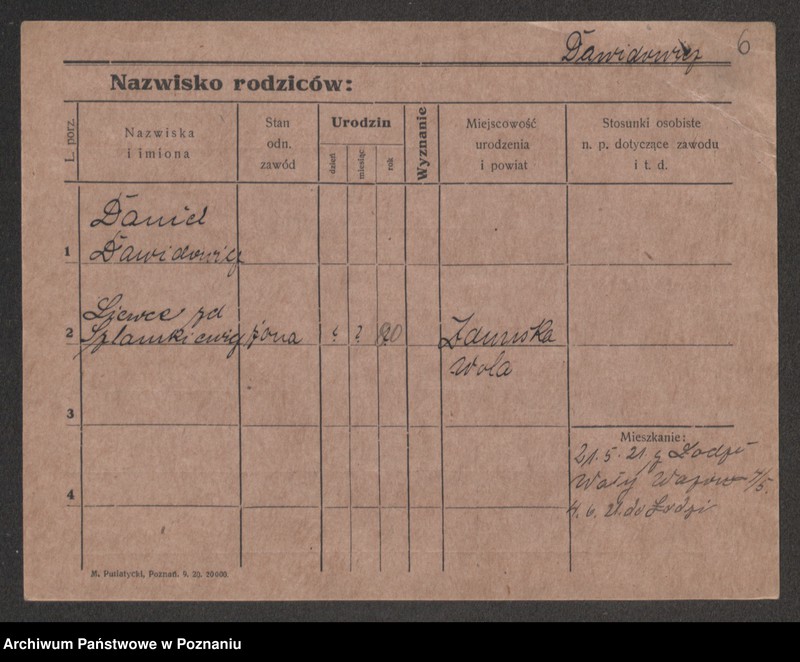 Dawidowicz
6
Nazwisko rodziców:
L. porz.
Nazwiska
i imiona
Stan
odn.
zawód
Urodzin
dzień
miesiąc
rok
Wyznanie
Miejscowość
urodzenia
i powiat
Stosunki osobiste
n. p. dotyczące zawodu
i t. d.
1
Daniel
Dawidowicz
2
zd
żona ? ? 90 Zduńska
Wola
3
Mieszkanie:
21. 5. 21 z Łodzi
Wały 4/5.
4
4. 6. 21. do Łodzi
M. Putiatycki, Poznań. 9. 20. 20000.
Archiwum Państwowe w Poznaniu